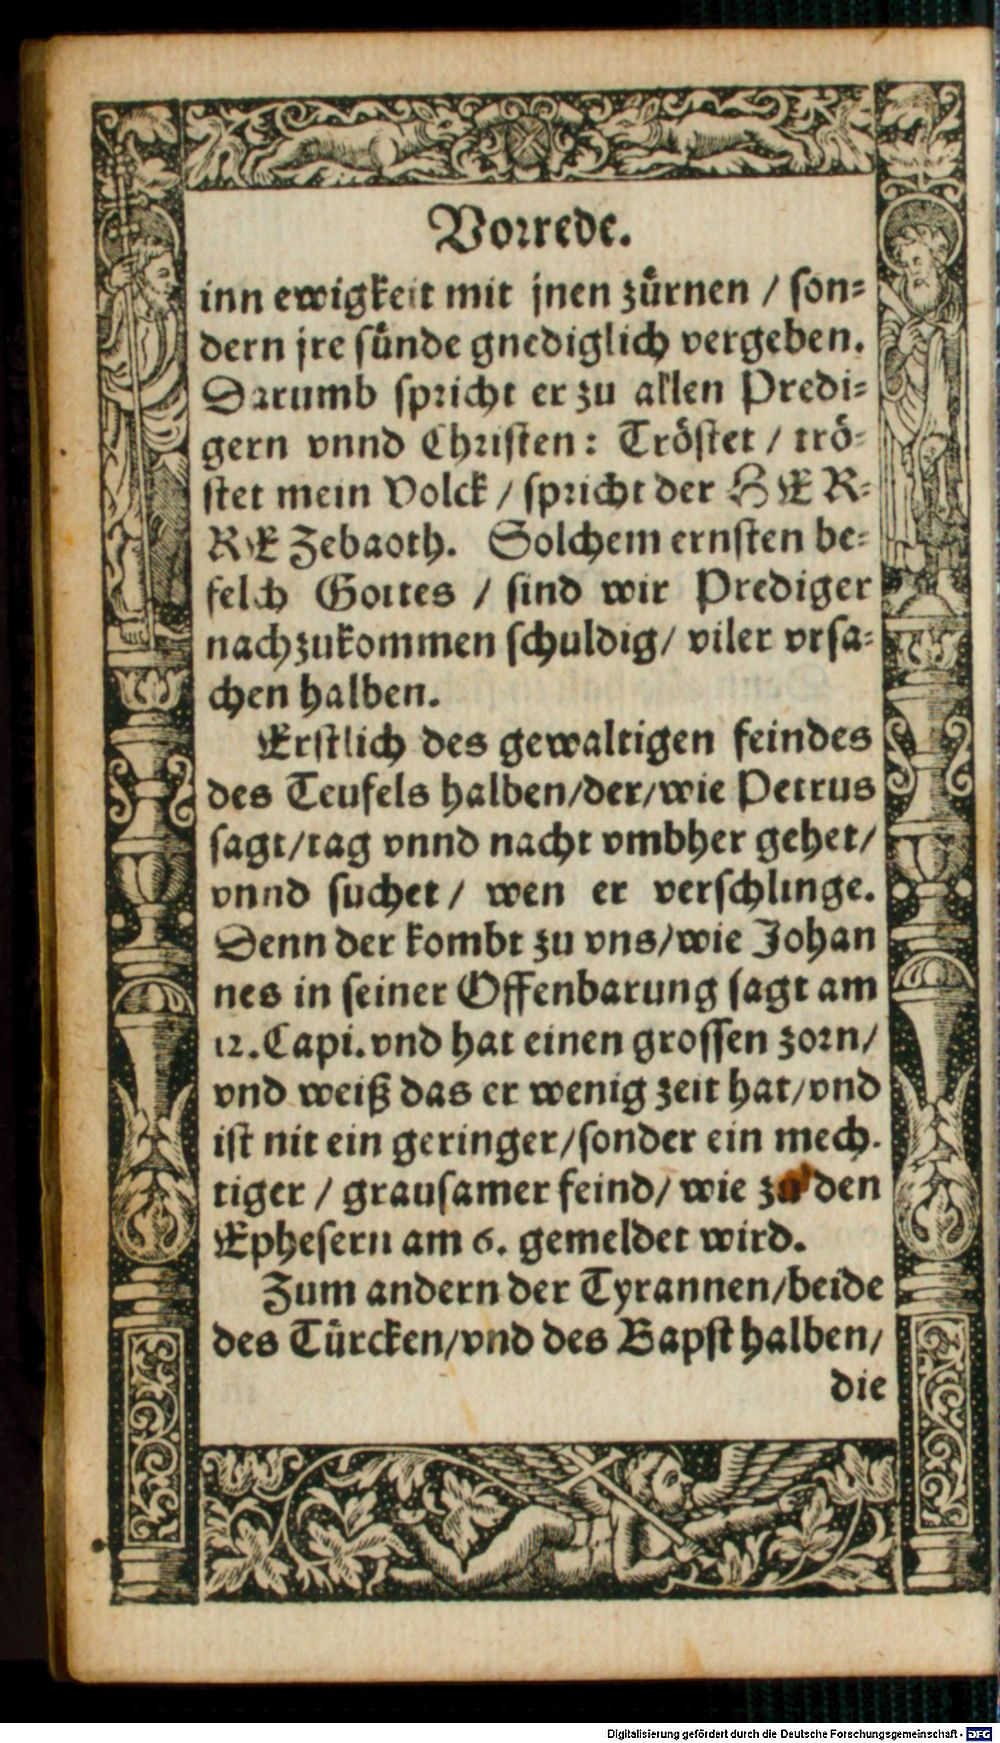 Vorrede.
inn ewigkeit mit jnen zuͤrnen / son⸗
dern jre suͤnde gnediglich vergeben.
Darumb spricht er zu allen Predi⸗
gern vnnd Christen: Troͤstet / troͤ⸗
stet mein Volck / spricht der HER⸗
RE Zebaoth. Solchem ernsten be⸗
felch Gottes / sind wir Prediger
nachzukommen schuldig/ viler vrsa⸗
chen halben.
Erstlich des gewaltigen feindes
des Teufels halben/der/wie Petrus
sagt/tag vnnd nacht vmbher gehet/
vnnd suchet / wen er verschlinge.
Denn der kombt zu vns/wie Johan
nes in seiner Offenbarung sagt am
12.Capi.vnd hat einen grossen zorn/
vnd weiß das er wenig zeit hat/vnd
ist nit ein geringer/sonder ein mech⸗
tiger / grausamer feind/ wie zu den
Ephesern am 6. gemeldet wird.
Zum andern der Tyrannen/beide
des Türcken/vnd des Bapst halben/
die
Digitalisierung gefördert durch die Deutsche Forschungsgemeinschaft - DFG